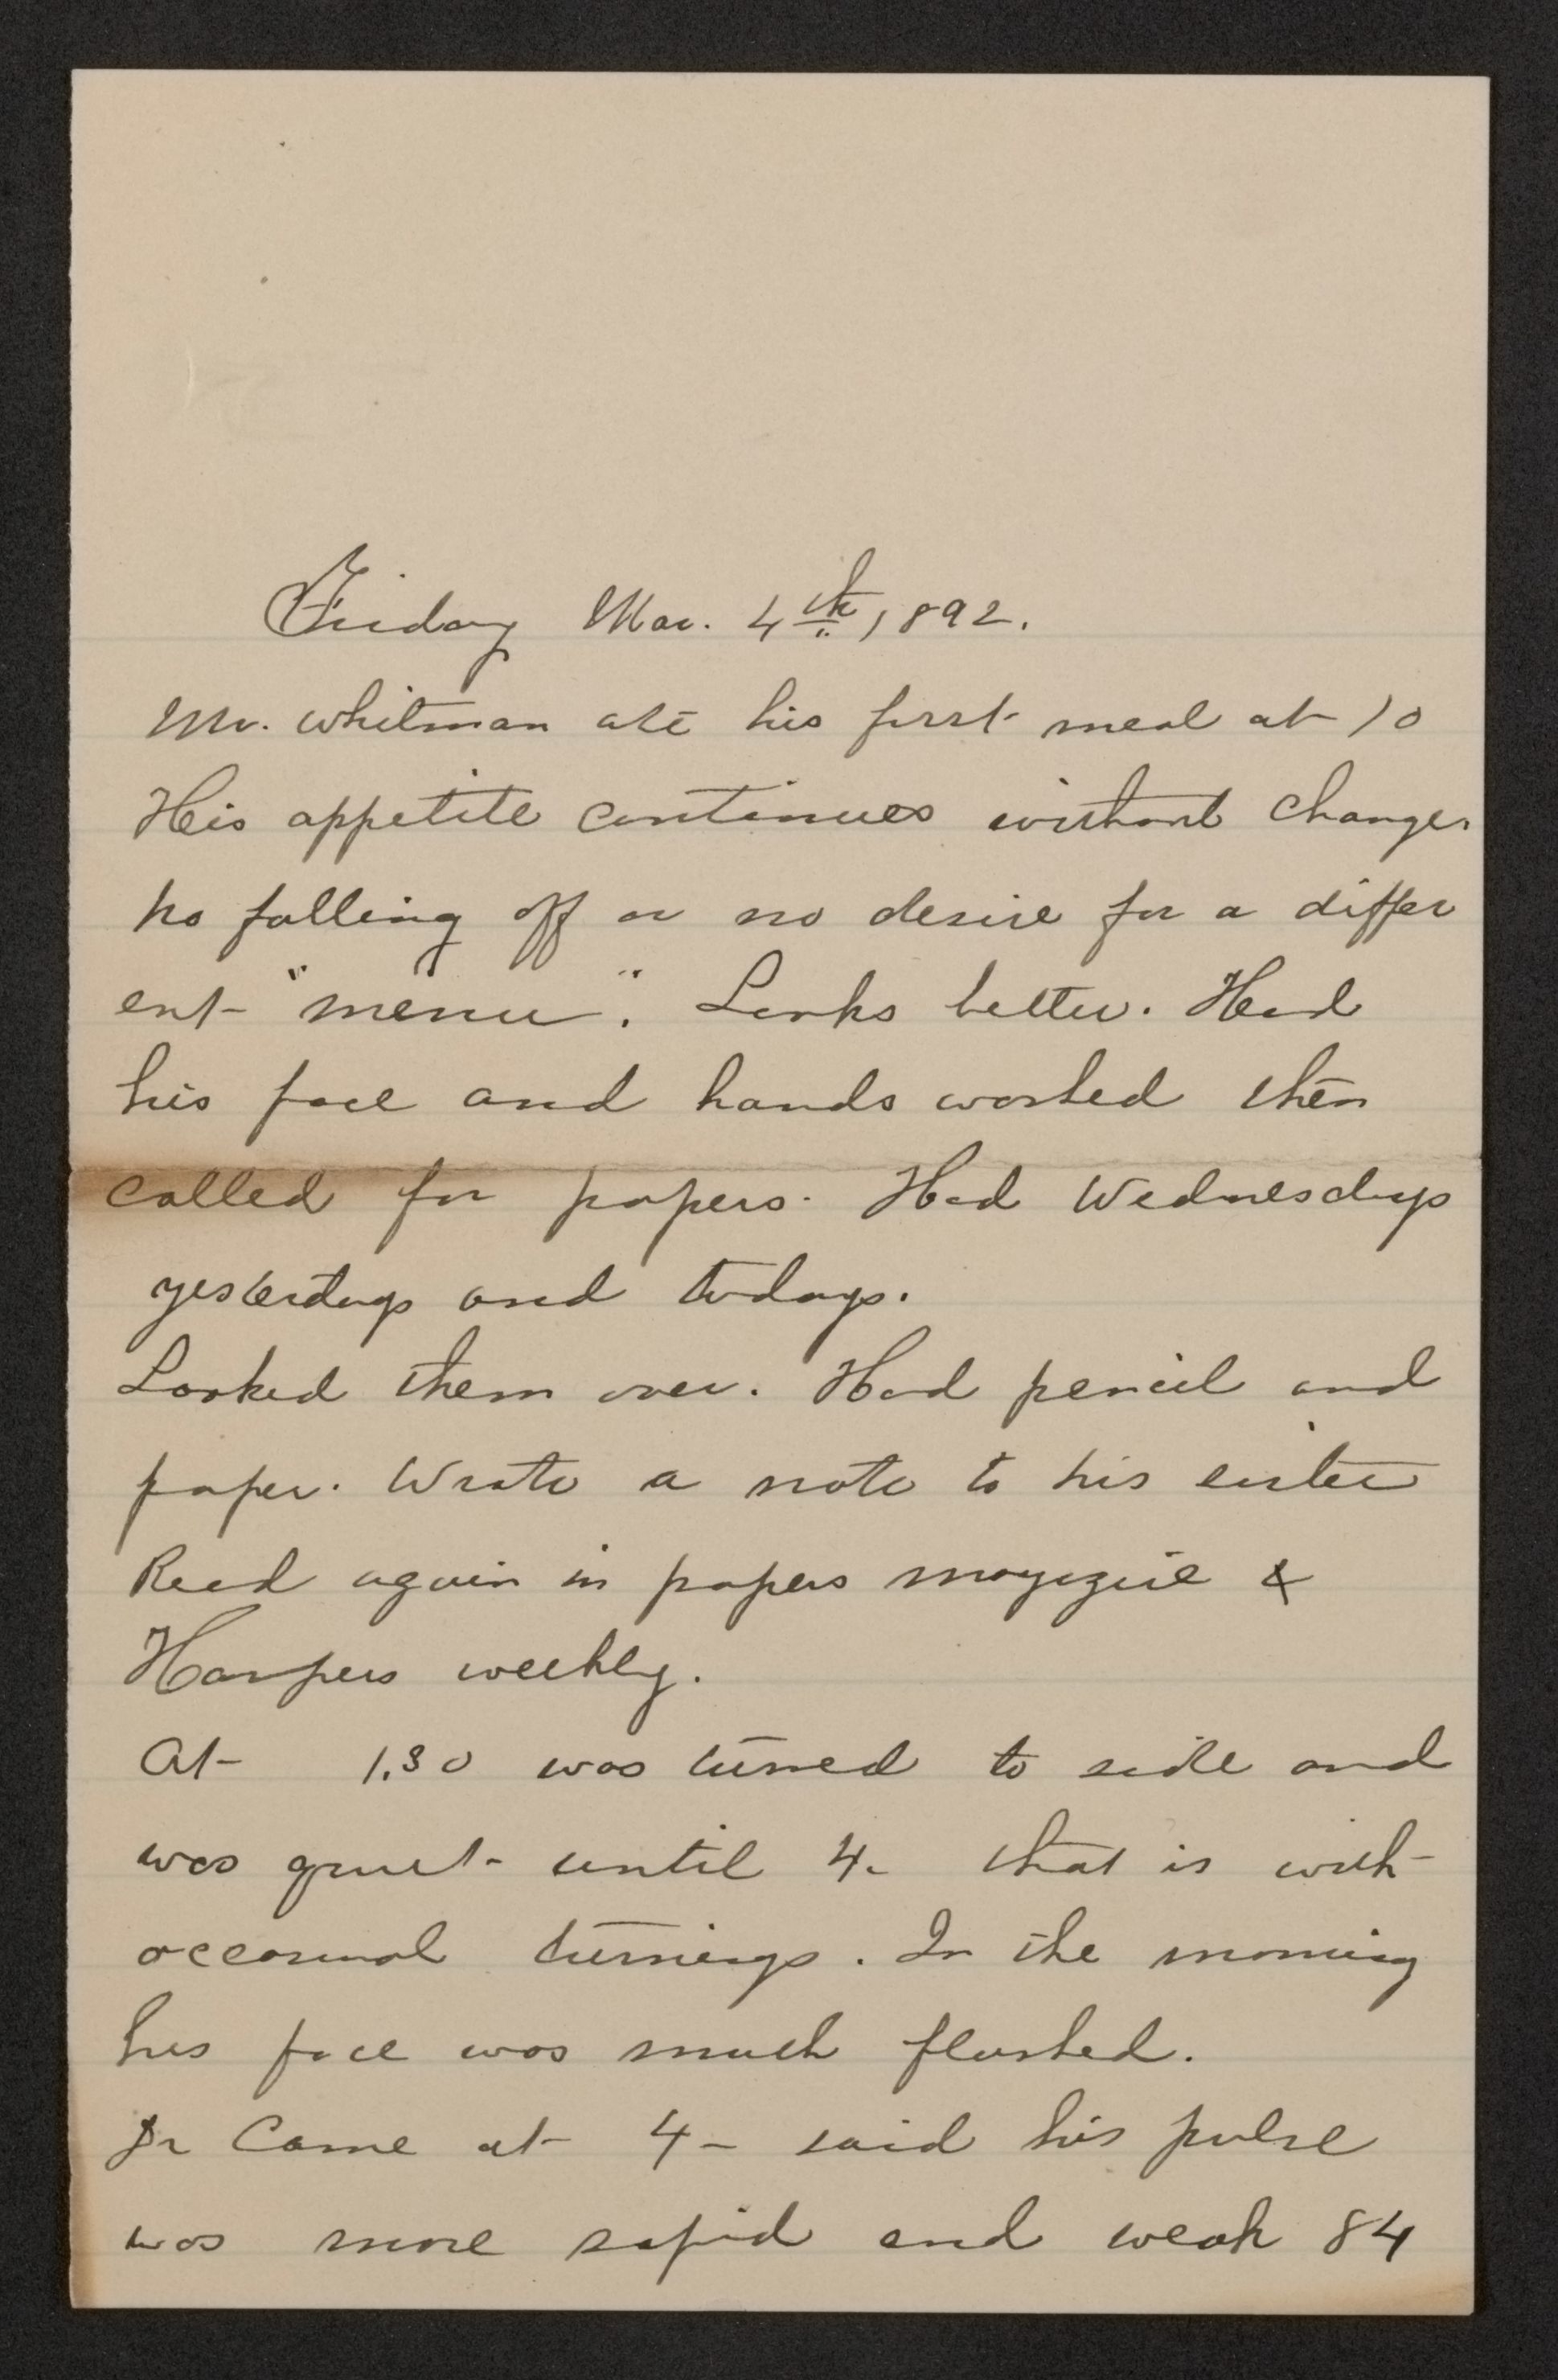 Friday Mar. 4th, 1892.
Mr. Whitman ate his first meal at 10
His appetite continues without change.
no falling off or no desire for a differ
ent "menu". Looks better. Had
his face and hands washed then
called for papers. Had Wednesdays
yesterdays and todays.
Looked them over. Had pencil and
paper. Wrote a note to his sister
Read again in papers magizine &
Harpers weekly.
At 1.30 was turned to side and
was quiet until 4. that is with
occasional turnings. In the morning
his face was much flushed.
Dr Came at 4 - said his pulse
was more rapid and weak 84